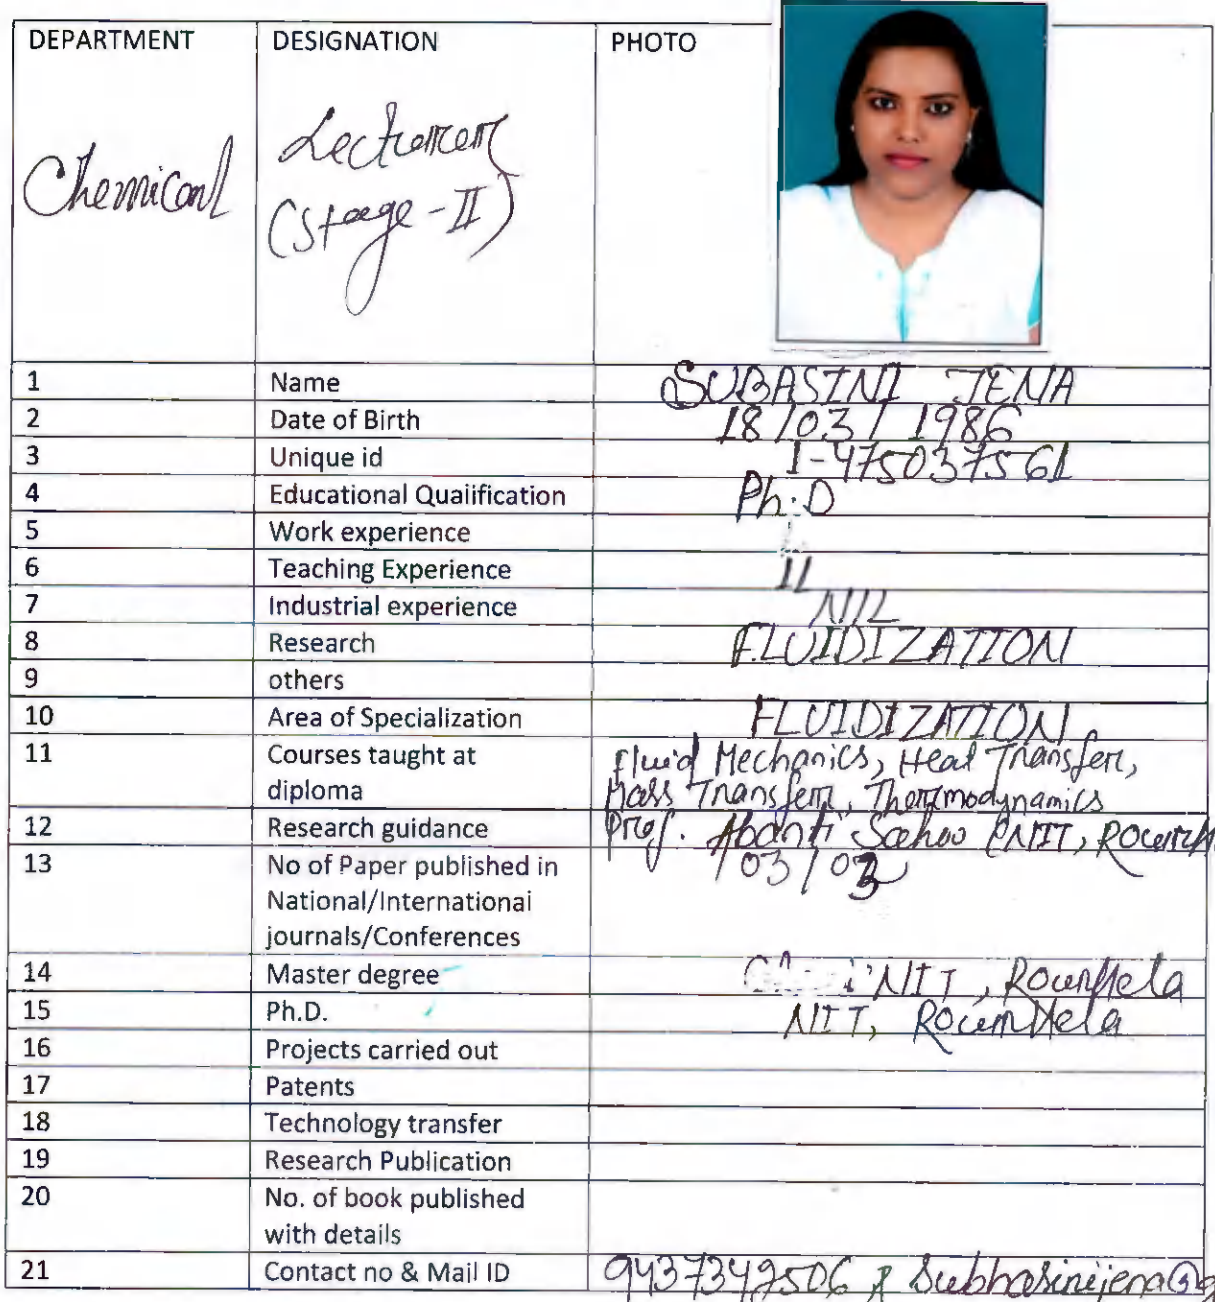 DEPARTMENT DESIGNATION PHOTO
Chemical Lecturer
(Stage-II)
1 Name SUBASINI JENA
2 Date of Birth 18/03/1986
3 Unique id 1-475037561
4 Educational Qualification Ph.D
5 Work experience
6 Teaching Experience 11
7 Industrial experience NIL
8 Research FLUIDIZATION
9 others
10 Area of Specialization FLUIDIZATION
11 Courses taught at Fluid Mechanics, Heat Transfer,
diploma Mass Transfer, Thermodynamics
12 Research guidance Prof. Abanti Sahoo (NIT,
13 No of Paper published in 03/03
National/International
journals/Conferences
14 Master degree NIT, Rourkela
15 Ph.D. NIT, Rourkela
16 Projects carried out
17 Patents
18 Technology transfer
19 Research Publication
20 No. of book published
with details
21 Contact no & Mail ID 9437342506 & subhasinijena@g